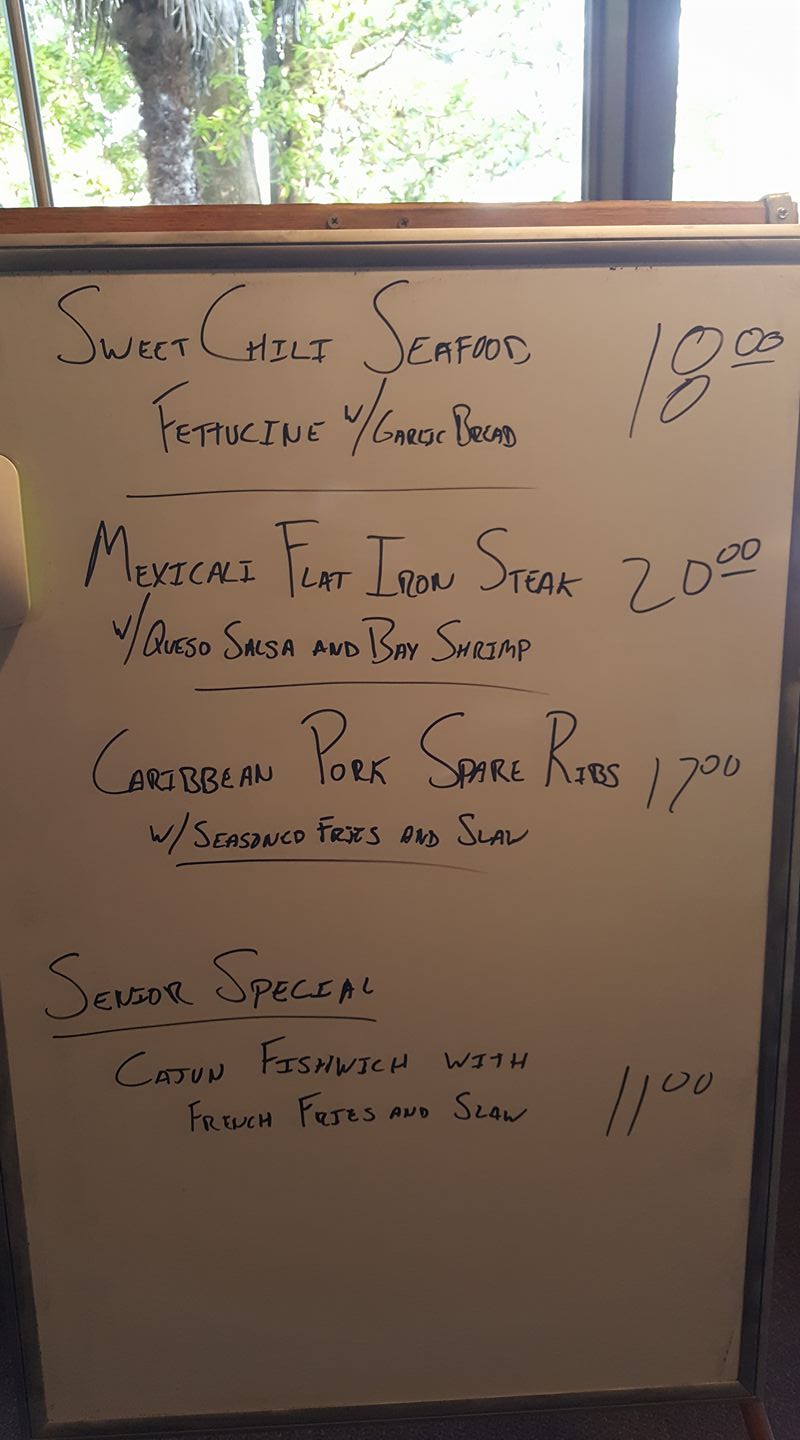 SWEET CHILI SEAFOOD 18 00
FETTUCINE W/ GARLIC BREAD
MEXICALI FLAT IRON STEAK 20 00
W/ QUESO SALSA AND BAY SHRIMP
CARIBBEAN PORK SPARE RIBS 17 00
W/ SEASONED FRIES AND SLAW
SENIOR SPECIAL
CAJUN FISHWICH WITH
FRENCH FRIES AND SLAW 11 00